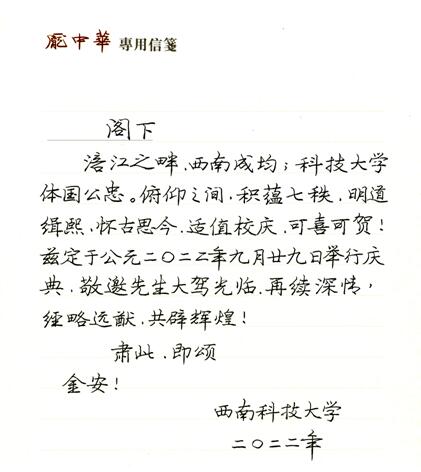 龐中華 專用信箋
阁下
涪江之畔,西南成均;科技大学
体国公忠。俯仰之间,积蕴七秩,明道
缉熙,怀古思今,适值校庆,可喜可贺!
兹定于公元二〇二二年九月廿九日举行庆
典,敬邀先生大驾光临,再续深情,
经略远猷,共辟辉煌!
肃此,即颂
金安!
西南科技大学
二〇二二年